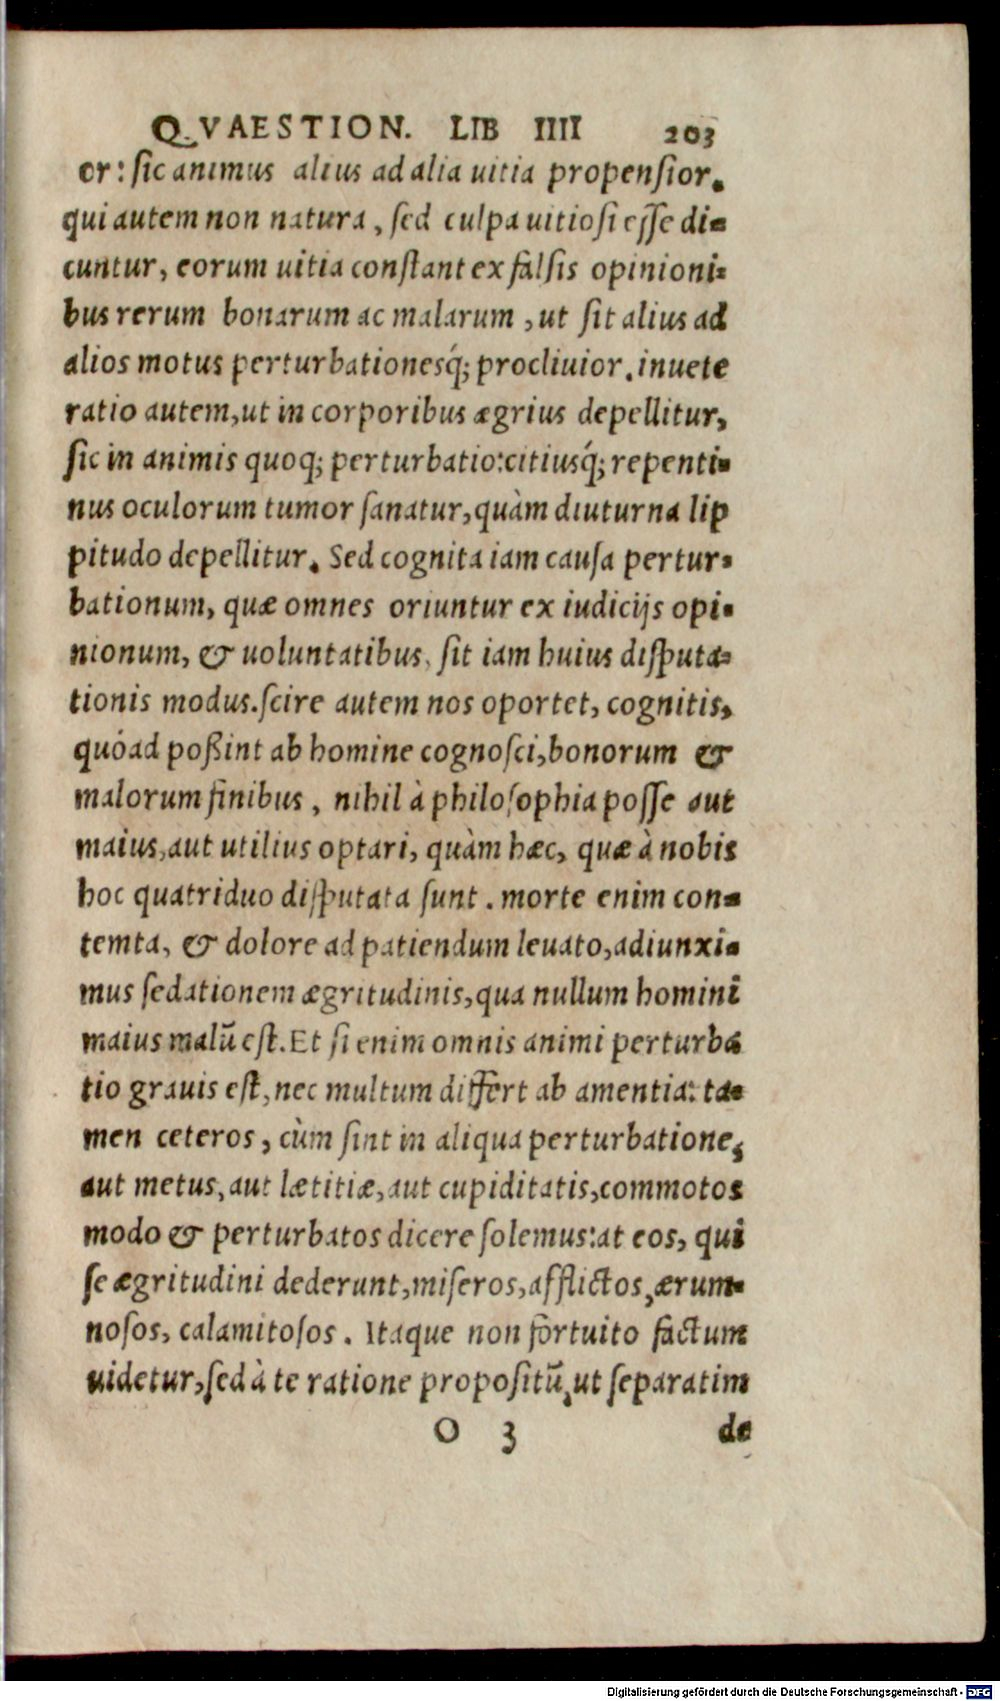 QVAESTION. LIB IIII 203
or: sic animus alius ad alia uitia propensior.
qui autem non natura, sed culpa uitiosi esse di-
cuntur, eorum uitia constant ex falsis opinioni-
bus rerum bonarum ac malarum, ut sit alius ad
alios motus perturbationesq́; procliuior. inuete
ratio autem, ut in corporibus ægrius depellitur,
sic in animis quoq; perturbatio: citiusq́; repenti-
nus oculorum tumor sanatur, quàm diuturna lip
pitudo depellitur. Sed cognita iam causa pertur-
bationum, quæ omnes oriuntur ex iudicijs opi-
nionum, & uoluntatibus, sit iam huius disputa-
tionis modus. scire autem nos oportet, cognitis,
quóad poßint ab homine cognosci, bonorum &
malorum finibus, nihil à philosophia posse aut
maius, aut utilius optari, quàm hæc, quæ à nobis
hoc quatriduo disputata sunt. morte enim con-
temta, & dolore ad patiendum leuato, adiunxi-
mus sedationem ægritudinis, qua nullum homini
maius malū est. Et si enim omnis animi perturba
tio grauis est, nec multum differt ab amentia: ta-
men ceteros, cùm sint in aliqua perturbatione,
aut metus, aut lætitiæ, aut cupiditatis, commotos
modo & perturbatos dicere solemus: at eos, qui
se ægritudini dederunt, miseros, afflictos, ærum-
nosos, calamitosos. Itaque non fortuito factum
uidetur, sed à te ratione propositū, ut separatim
O 3 de
Digitalisierung gefördert durch die Deutsche Forschungsgemeinschaft - DFG